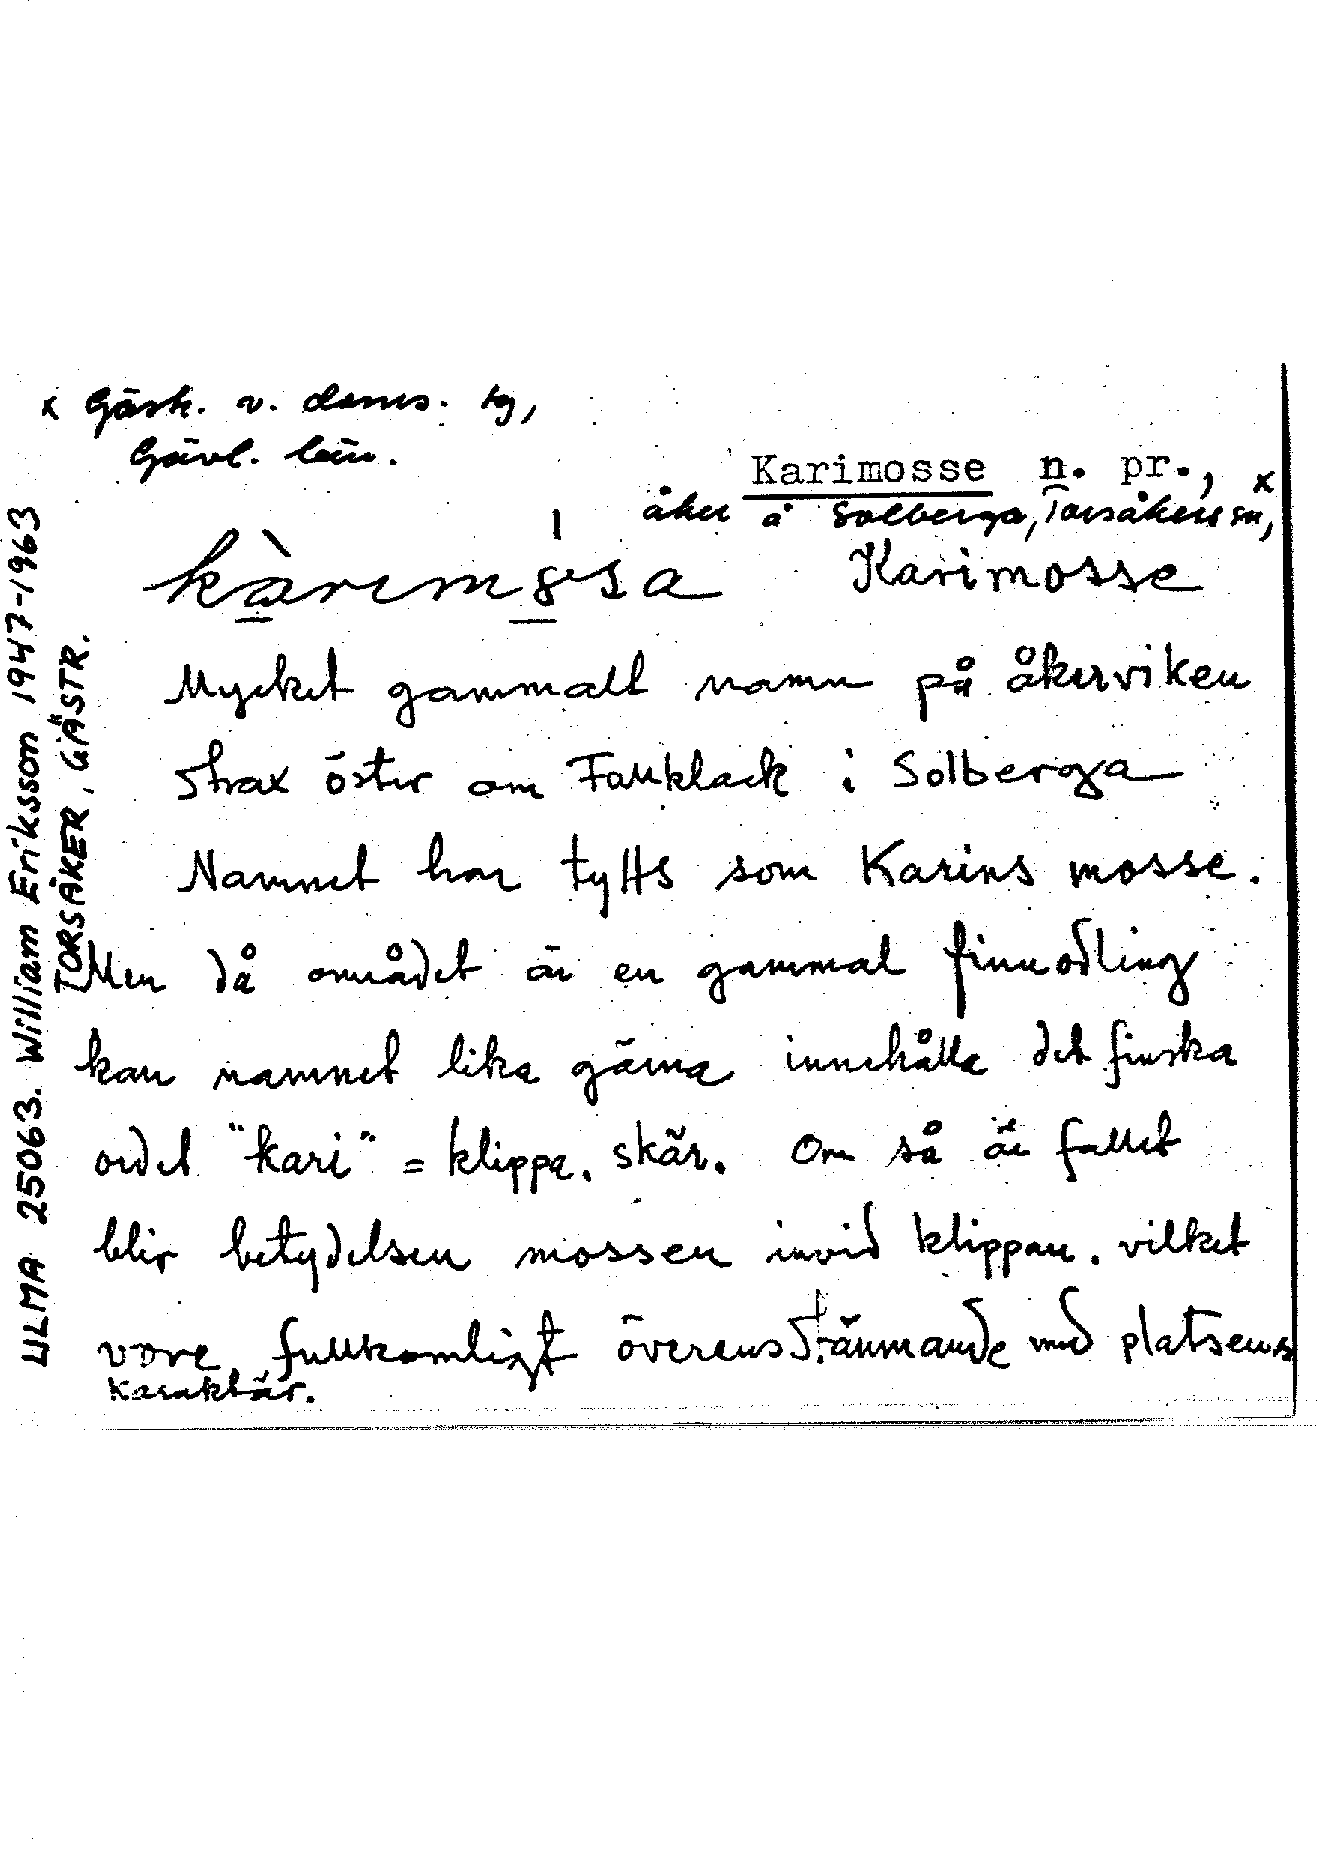 x Gästr. v. doms. tg,
Gävl. län.
Karimosse n. pr., x
åker å Solberga, Torsåkers sn,
Karimosse
Mycket gammalt namn på åkerviken
strax öster om Falluklack i Solberga
Namnet har tytts som Karins mosse.
Men då området är en gammal finnodling
kan namnet lika gärna innehålla det finska
ordet "kari" = klippa, skär. Om så är fallet
blir betydelsen mossen invid klippan, vilket
vore fullkomligt överensstämmande med platsens
karaktär.
ULMA 25063. William Eriksson 1947-1963
TORSÅKER, GÄSTR.